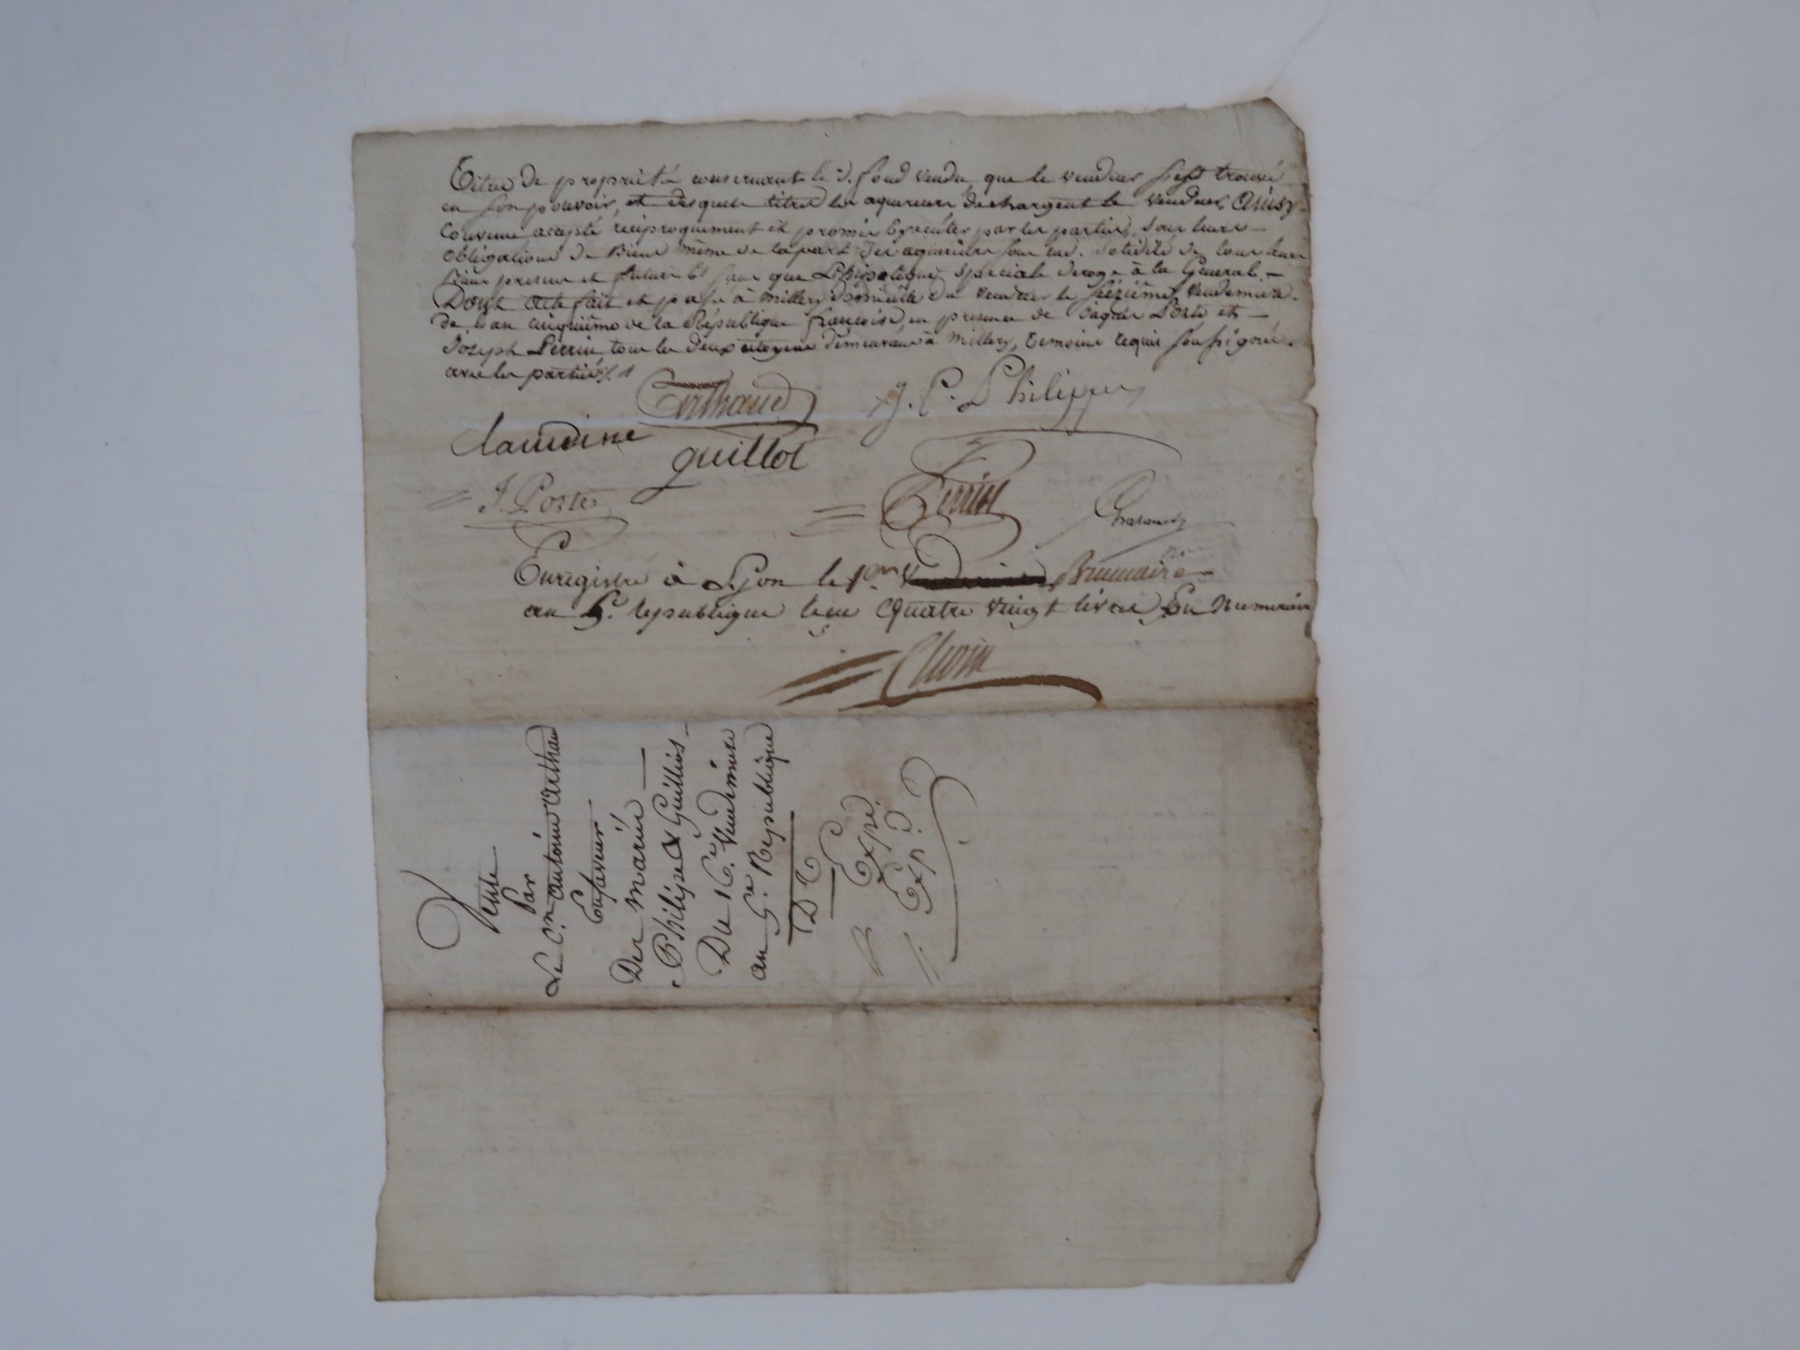 Titres de propriété concernants le d. fond vendu, que le vendeur s'est trouvé
en son pouvoir, et desquels titres les aquereurs dechargent le vendeur, Ainsy
Convenu accepté reciproquement et promis Executer par les parties, sous leurs
obligations de Biens même de la part des aquereurs sous une solidité de tous leurs
biens presens et futurs sans que L'hipoteque speciale deroge à la General
Dont Acte fait et passé à Millery domicille du vendeur le seizième Vendemiere
de l'an cinquième de la République françoise, en presence de Jaques Poste et
Joseph Perrin, tous les deux citoyens demeurans à Millery, temoins requis soussignés
avec les parties /. /
Arthaud J. C. Philippe
Claudine guillot
J. Poste Perrin
Enregistré à Lyon le 1er Brumaire
an 5.e republique reçu Quatre vingt livres En Numeraire
Vente
Par
Le C.en antoine Arthaud
En faveur
Des mariés
Philipe & Guillios
Du 16.e Vendemiere
an 5.e Republique
D T
Expé.
Exp.d